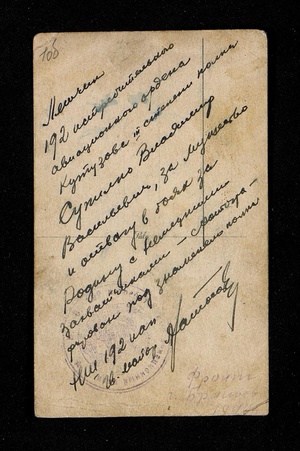 106
Летчик
192 истребительного
авиационного ордена
Кутузова III степени полка
Сутылко Владимир
Васильевич, за мужество
и отвагу в боях за
Родину с немецкими
захватчиками – сфотогра-
фирован под знаменем полка
НШ 192 иап